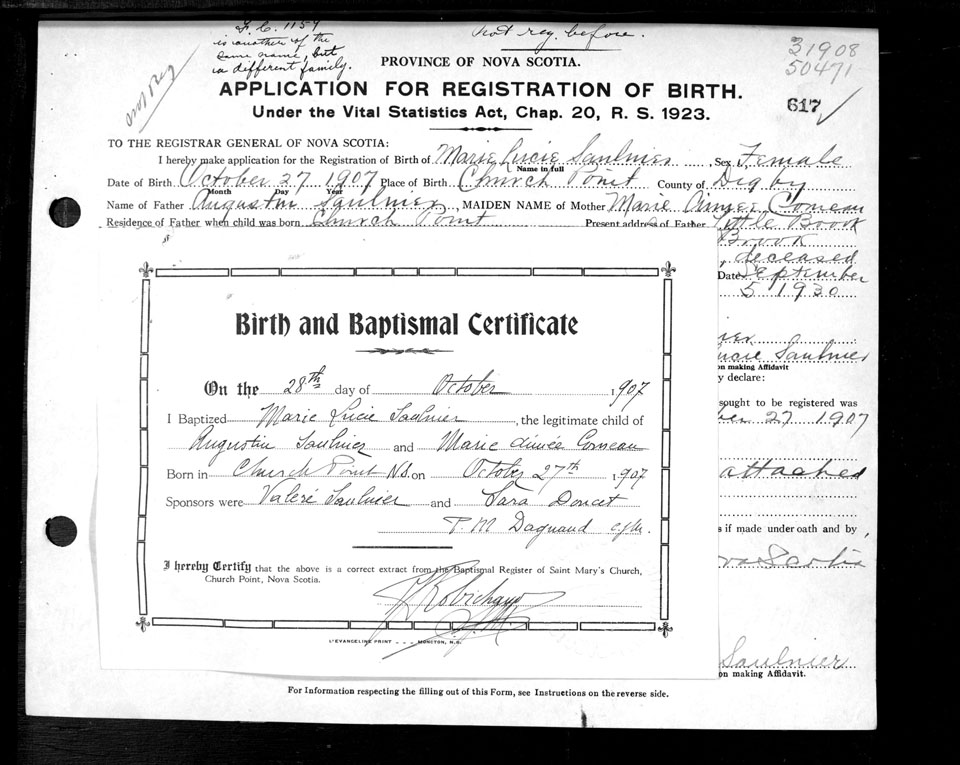 F. C. 1157
is another of the
same name, but
in different family.
Not reg. before.
31908
50471
617
PROVINCE OF NOVA SCOTIA.
APPLICATION FOR REGISTRATION OF BIRTH.
Under the Vital Statistics Act, Chap. 20, R. S. 1923.
TO THE REGISTRAR GENERAL OF NOVA SCOTIA:
I hereby make application for the Registration of Birth of Marie Lucie Saulnier, Sex Female
Name in full
Date of Birth October 27 1907 Place of Birth Church Point County of Digby
Month Day Year
Name of Father Augustin Saulnier, MAIDEN NAME of Mother Marie Aimee Comeau
Residence of Father when child was born Church Point Present address of Father Little Brook
Brook
, deceased
Date September
5 1930
Birth and Baptismal Certificate
On the 28th day of October 1907
I Baptized Marie Lucie Saulnier, the legitimate child of
Augustin Saulnier and Marie Aimée Comeau
Born in Church Point N.S. on October 27th 1907
Sponsors were Valeré Saulnier and Sara Doucet
P. M. Dagnaud c.j.m.
I hereby Certify that the above is a correct extract from the Baptismal Register of Saint Mary's Church,
Church Point, Nova Scotia.
Robichaud
L'EVANGELINE PRINT - - - MONCTON, N.B.
ucie Saulnier
on making Affidavit
y declare:
sought to be registered was
ber 27 1907
attached
s if made under oath and by
ova Scotia
Saulnier
on making Affidavit.
For Information respecting the filling out of this Form, see Instructions on the reverse side.